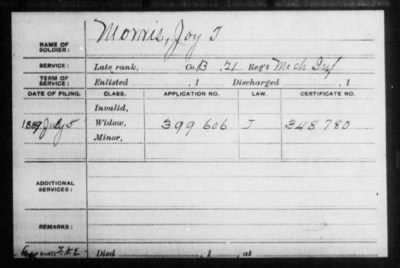 Morris, Joy T
NAME OF
SOLDIER:
SERVICE: Late rank, Co. B. 21 Reg't Mich Inf
TERM OF
SERVICE: Enlisted , 1 Discharged , 1
DATE OF FILING. CLASS. APPLICATION NO. LAW. CERTIFICATE NO.
Invalid,
1889 July 5 Widow, 399606 J 348780
Minor,
ADDITIONAL
SERVICES:
REMARKS:
Died , 1 , at